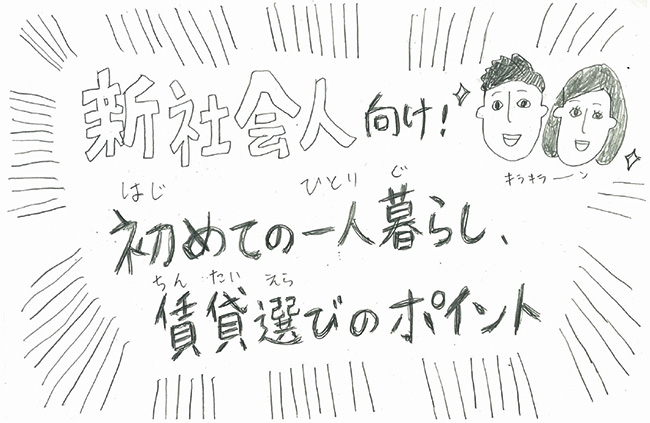 新社会人向け!
キラキラーン
はじ ひとり ぐ
初めての一人暮らし、
ちん たい えら
賃貸選びのポイント